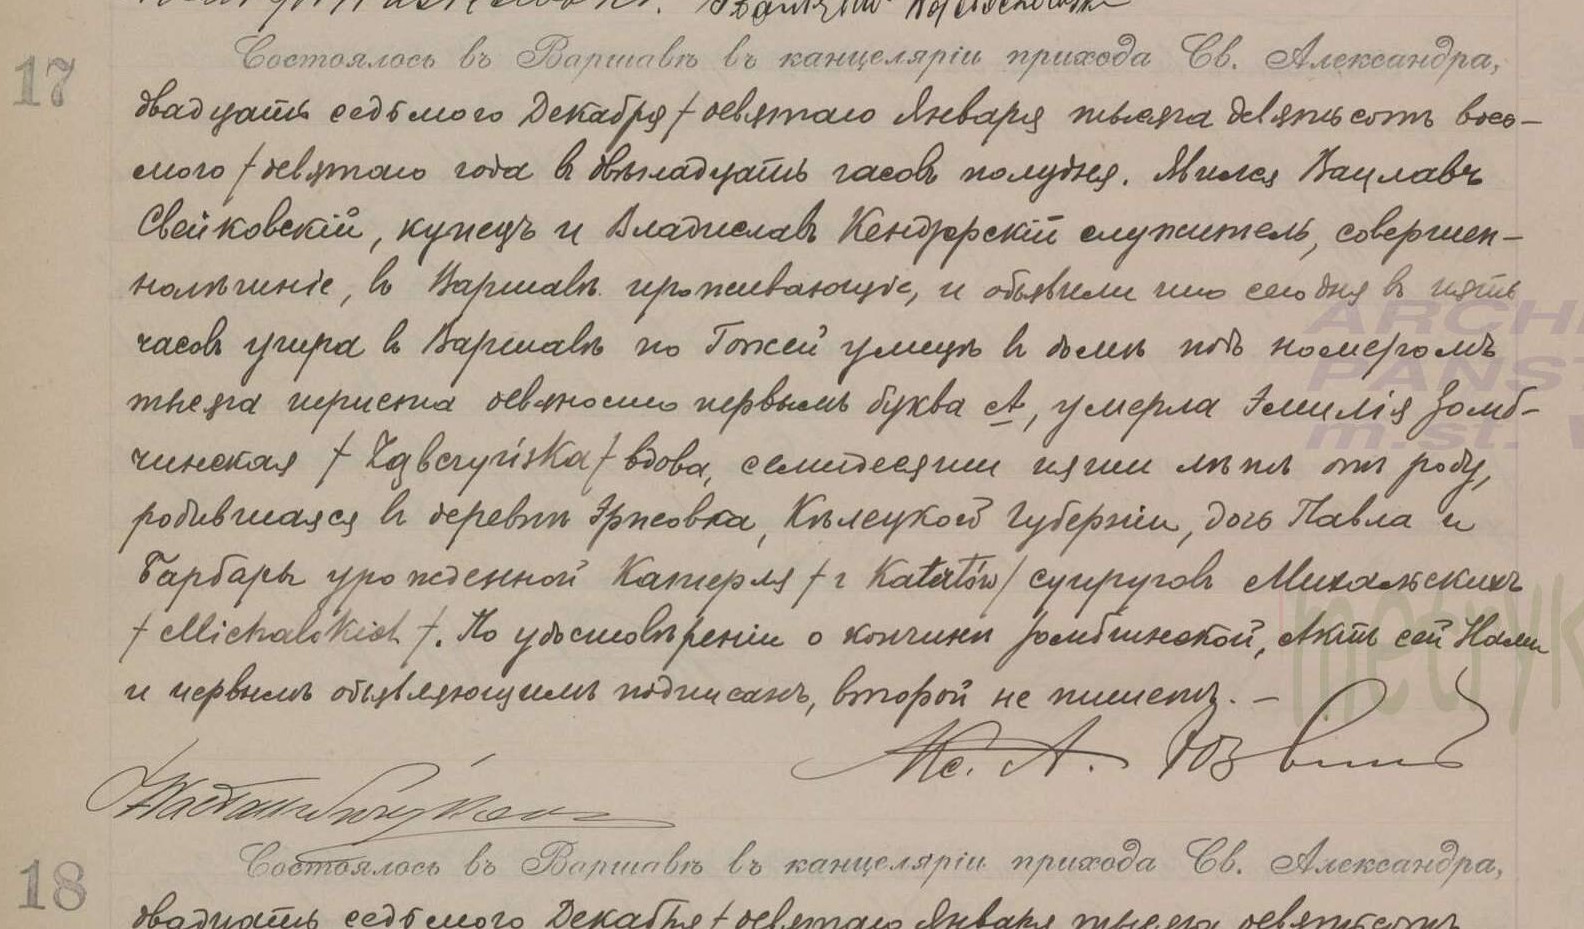 17
Состоялось въ Варшавѣ въ канцеляріи прихода Св. Александра,
двадцать седьмого Декабря / девятаго Января тысяча девятьсотъ вось-
мого / девятаго года в двѣнадцать часовъ полудня. Явился Вацлавъ
Свейковскій, купецъ и Владиславъ Кендзерскій служитель, совершен-
нолѣтніе, въ Варшавѣ проживающіе, и объявили что сего дня в пять
часовъ утра в Варшавѣ по Гожей улицѣ в домѣ подъ номеромъ
тысяча шестьсотъ первымъ буква А, умерла Эмилія Зомб-
чинская / Ząbczyńska / вдова, семидесяти пяти лѣтъ отъ роду,
родившаяся в деревнѣ Эржовка, Кѣлецкой Губерніи, дочь Павла и
Барбары урожденной Катерля / z Katerlów / супруговъ Михальскихъ
/ Michalskich /. По удостовѣреніи о кончинѣ Зомбчинской, Актъ сей Нами
и первымъ объявляющимъ подписанъ, второй не пишетъ. –
Кс. А.
18
Состоялось въ Варшавѣ въ канцеляріи прихода Св. Александра,
двадцать седьмого Декабря / девятаго Января тысяча девятьсотъ
ARCHI
PAŃST
m.st. W
metryk